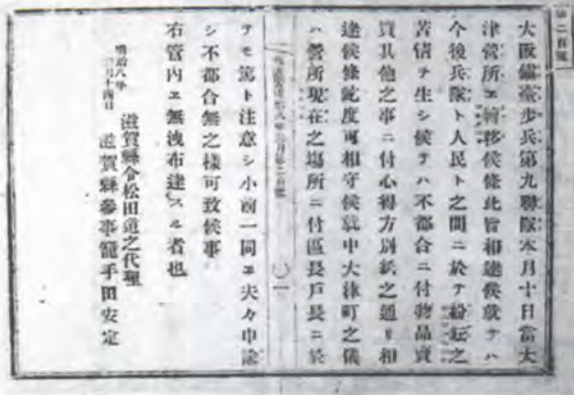 第二百號
大阪鎮臺歩兵第九聯隊本月十日當大
津營所ヱ轉移候條此旨相達候就テハ
今後兵隊ト人民ト之間ニ於テ紛紜之
苦情ヲ生シ候テハ不都合ニ付物品賣
買其他之事ニ付心得方別紙之通リ相
達候條屹度可相守候就中大津町之儀
ハ營所現在之場所ニ付區長戸長ニ於
テモ篤ト注意シ小前一同ヱ夫々申諭
シ不都合無之樣可致候事
右管内ヱ無洩布達スル者也
明治八年
三月十四日
滋賀縣令松田道之代理
滋賀縣參事籠手田安定